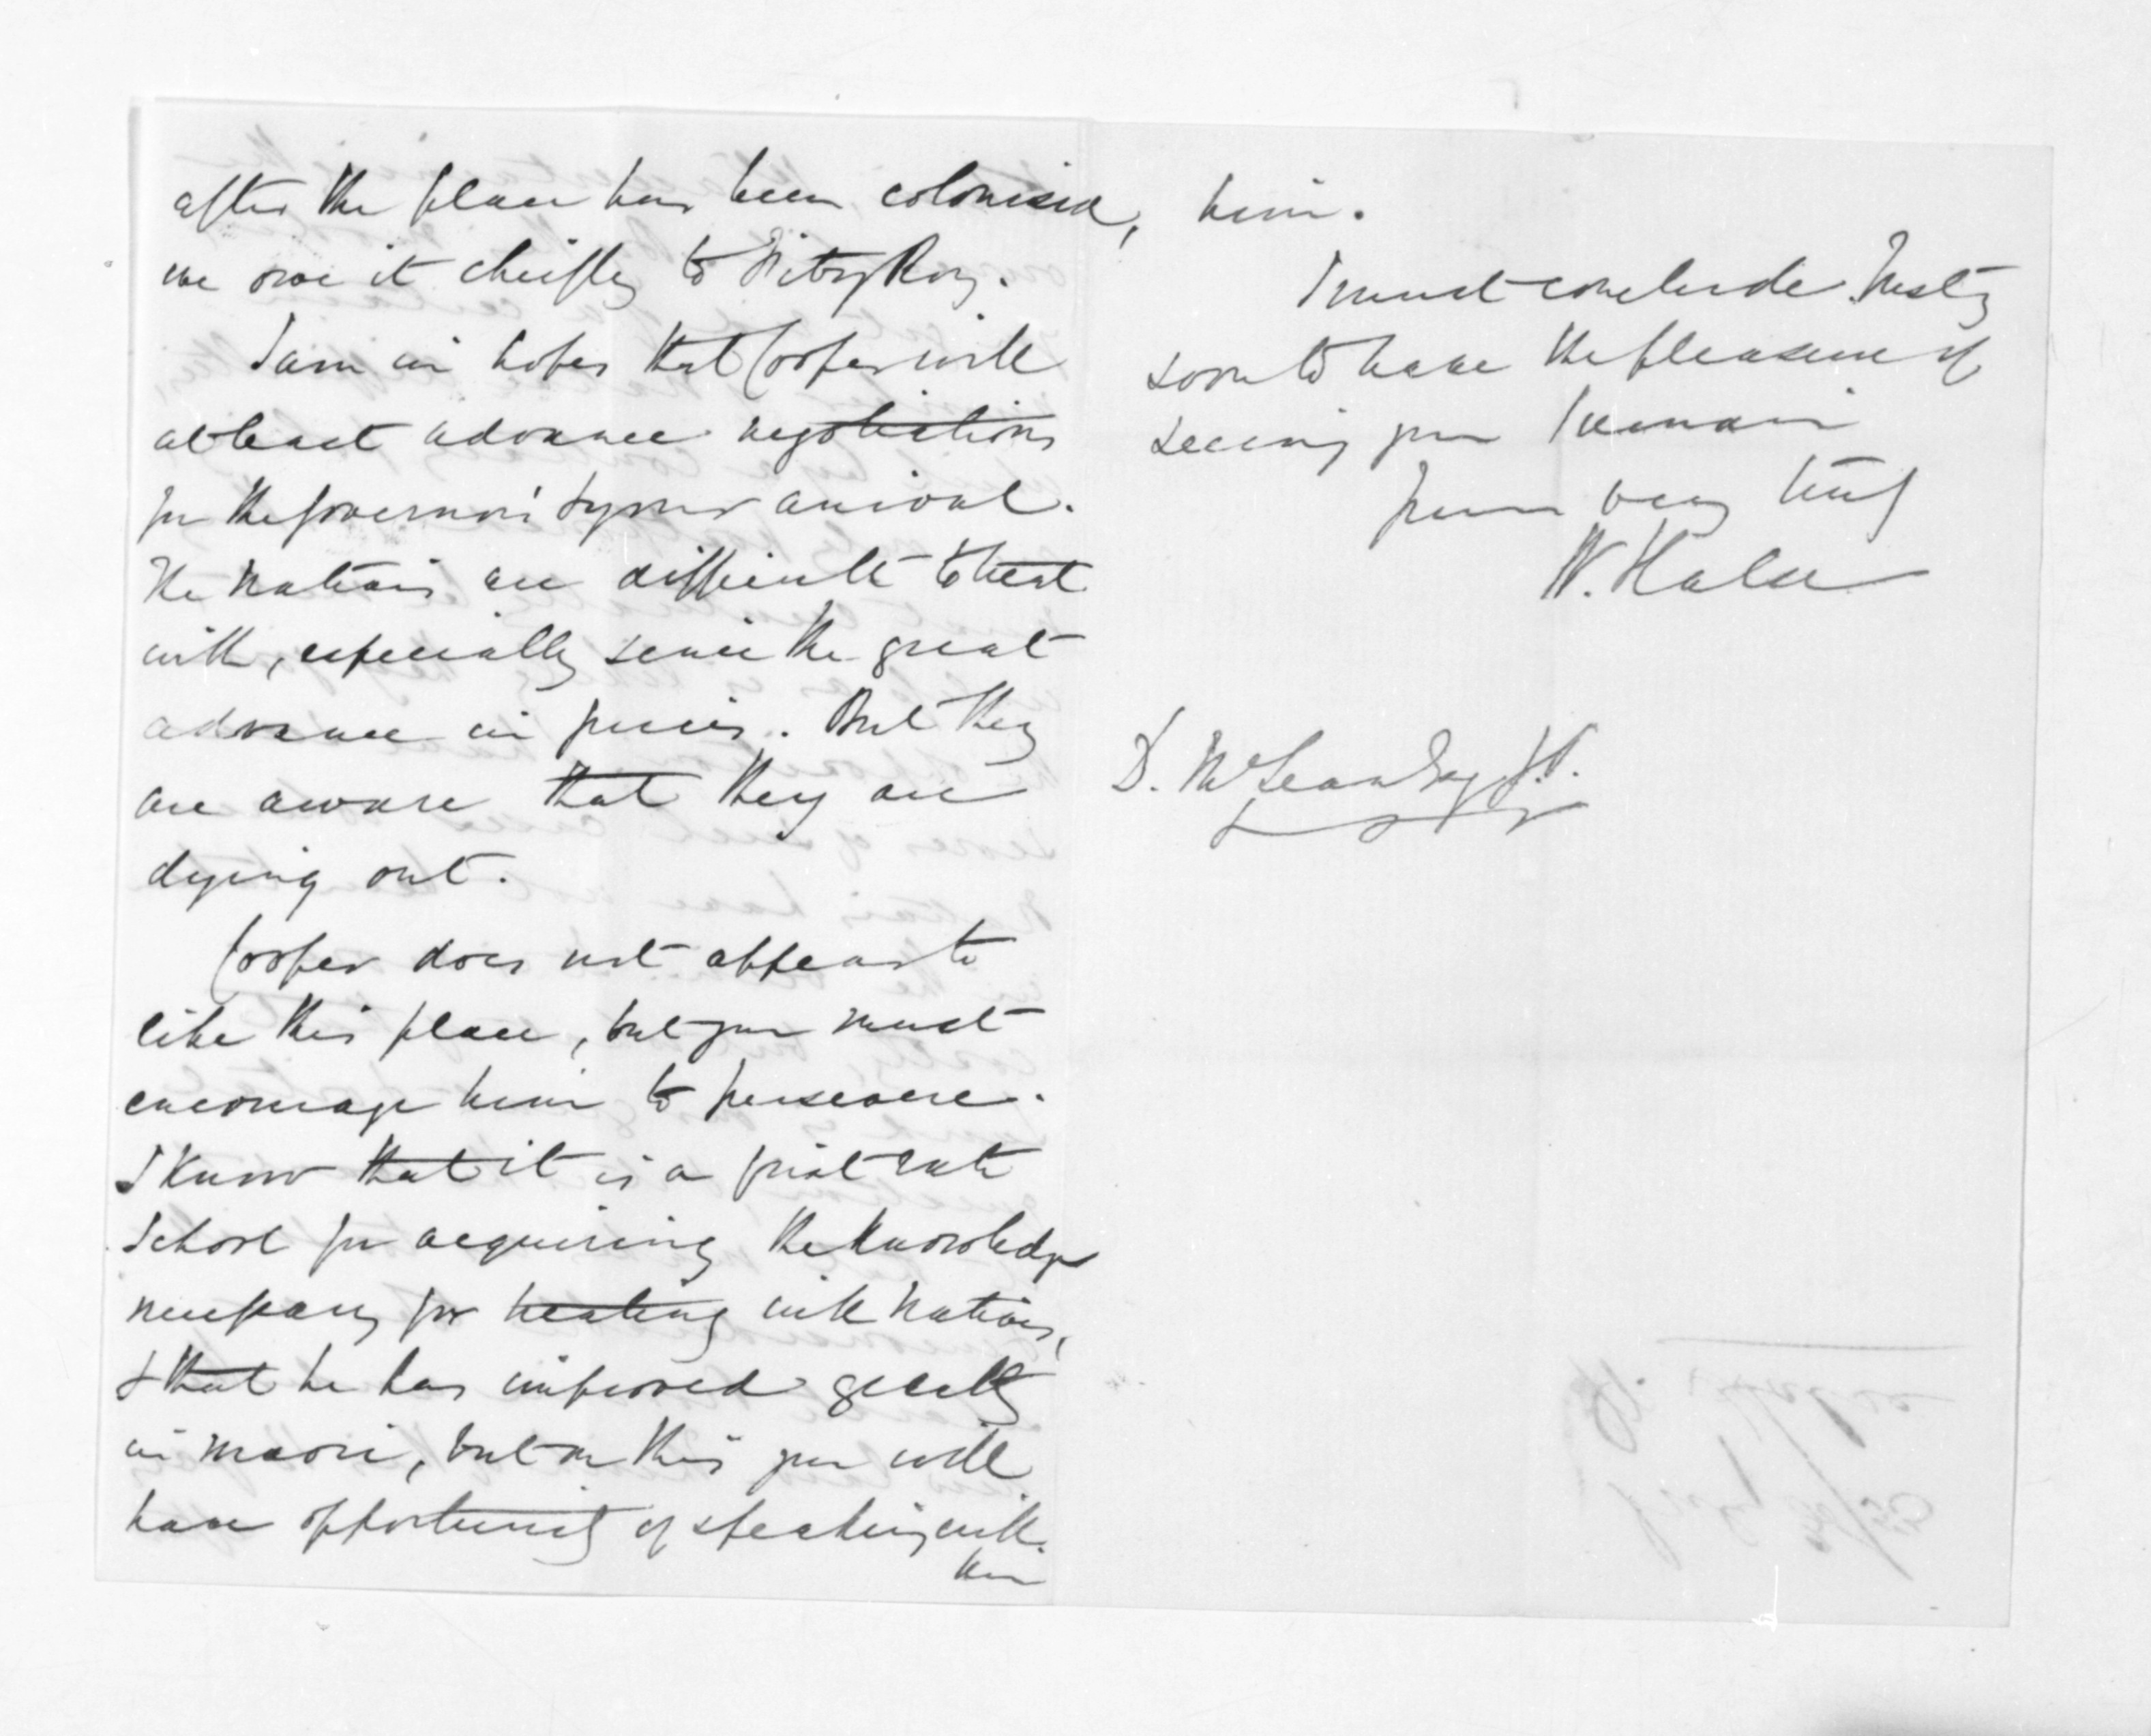 after the place has been colonised,
we owe it cheifly to FitzRoy.
I am in hopes that Cooper will
at least advance negotiations
for the Governor's & your arrival.
The Natives are difficult to treat
with, especially since the great
advance in prices. But they
are aware that they are
dying out.
Cooper does not appear to
like this place, but you must
encourage him to persevere.
I know that it is a first rate
School for acquiring the knowledge
necessary for treating with Natives,
& that he has improved greatly
in Maori, but on this you will
have opportunity of speaking with
him
him.
I must conclude. Trusting
soon to have the pleasure of
seeing you I remain
Yours very truly
W. Halse
D. McLean Esq J.P.